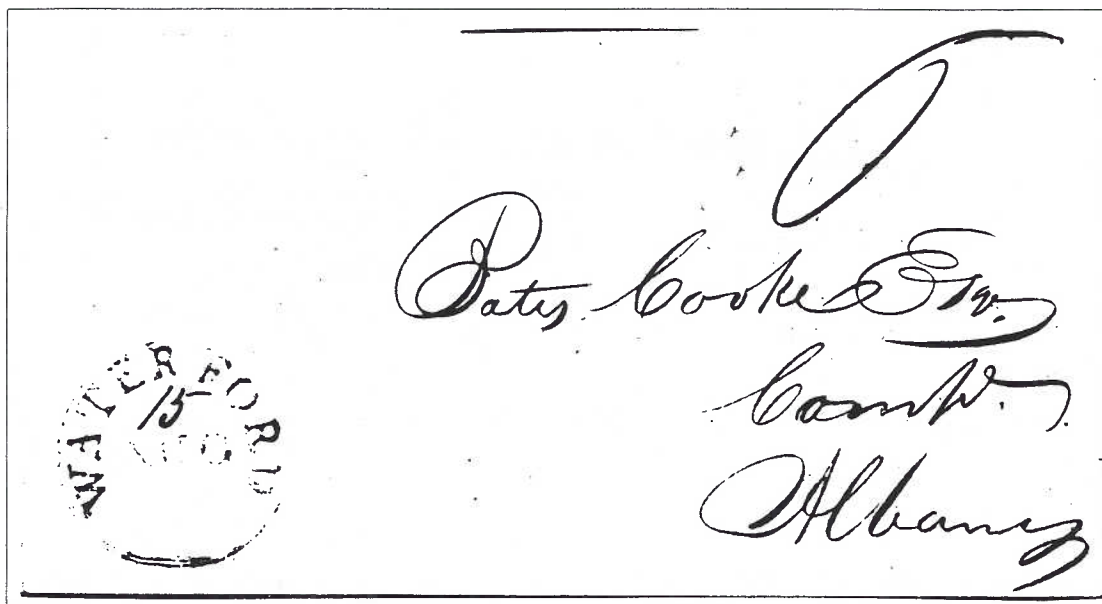 Bates Cooke Esqr.
Compr.
Albany
WATERFORD
15